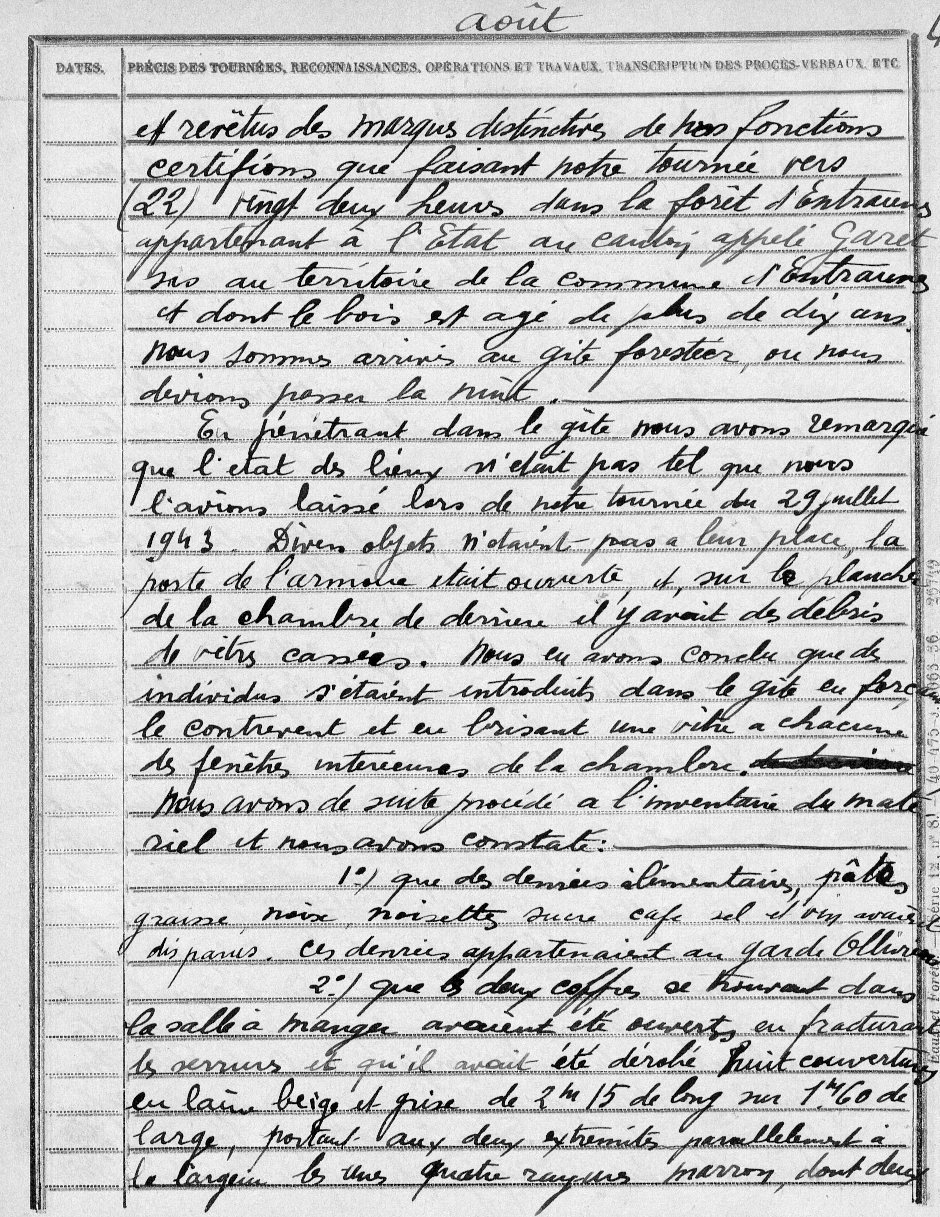 août
DATES. PRÉCIS DES TOURNÉES, RECONNAISSANCES, OPÉRATIONS ET TRAVAUX, TRANSCRIPTION DES PROCÈS-VERBAUX, ETC
et revêtus des marques distinctives de nos fonctions
certifions que faisant notre tournée vers
(22) vingt deux heures dans la forêt d'Entraunes
appartenant à l'Etat au canton appelé Garet
sis au territoire de la commune d'Entraunes
et dont le bois est agé de plus de dix ans
nous sommes arrivés au gite forestier, ou nous
devions passer la nuit.
En pénétrant dans le gîte nous avons remarqué
que l'etat des lieux n'était pas tel que nous
l'avions laissé lors de notre tournée du 29 juillet
1943. Divers objets n'étaient pas a leur place, la
porte de l'armoire etait ouverte, et, sur le plancher
de la chambre de derriere il y avait des débris
de vitres cassées. Nous en avons conclu que des
individus s'étaient introduits dans le gîte en forçant
le contrevent et en brisant une vitre a chacune
des fenêtres interieures de la chambre.
Nous avons de suite procédé a l'inventaire du maté
riel et nous avons constaté:
1°/ que des denrées alimentaires, pâtes
graisse, noix, noisettes, sucre cafe sel et vin avaient
disparus. Ces denrées appartenaient au garde Ollivier
2°/ que les deux coffres se trouvant dans
la salle à manger avaient été ouverts, en fracturant
les serrures et qu'il avait été dérobé huit couvertures
en laine beige et grise de 2m15 de long sur 1m60 de
large, portant aux deux extremités parallelement à
la largeur les unes quatre rayures marron, dont deux